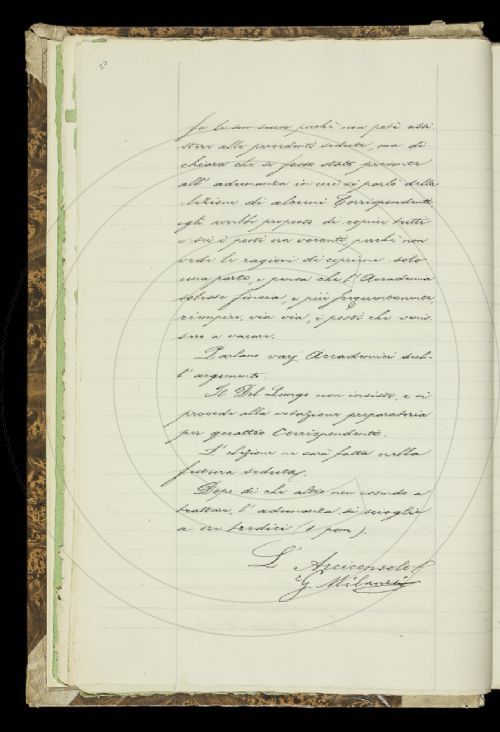 20
fa le sue scuse perchè non potè assi
stere alla precedente seduta, ma di
chiara che se fosse stato presente
all' adunanza in cui si parlò della
elezione di alcuni Corrispondenti
egli avrebbe proposto di coprire tutti
e sei i posti ora vacanti, perchè non
vede le ragioni di coprirne solo
una parte, e pensa che l' Accademia
debba finora, e più frequentemente
riempire, via via, i posti che venis
sero a vacare.
Parlano varj Accademici sul-
l' argomento.
Il Del Lungo non insiste, e si
procede alla votazione preparatoria
per quattro Corrispondenti.
L' elezione ne sarà fatta nella
futura seduta.
Dopo di che altro non essendo a
trattare, l' adunanza si scioglie
a ore tredici (1 pom.).
L' Arciconsolo
G. Milanesi